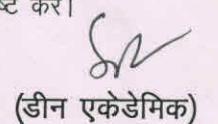 करें।
(डीन एकेडेमिक)